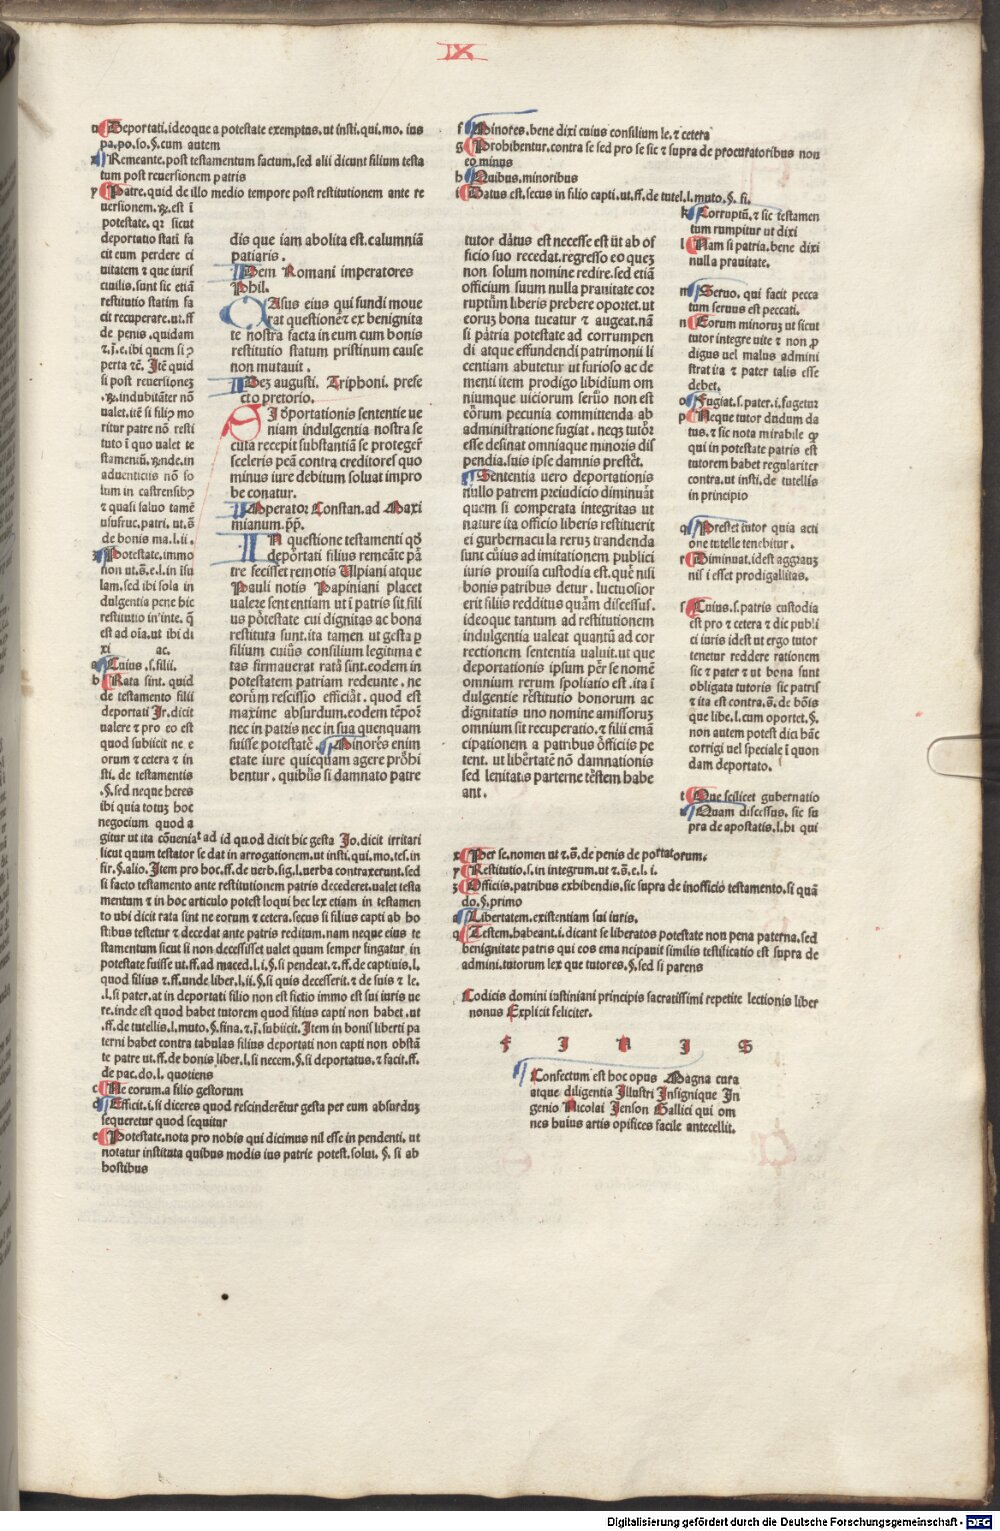 IX
n Deportati.ideoque a potestate exemptus.ut insti.qui.mo. ius
pa.po.so.§.cum autem
x Remeante.post testamentum factum.sed alii dicunt filium testa
tum post reuersionem patris
y Patre.quid de illo medio tempore post restitutionem ante re
uersionem.
potestate. qr sicut
deportatio stati fa
cit eum perdere ci
uitatem ⁊ que iuris
ciuilis.sunt sic etiã
restitutio statim fa
cit recuperare.ut.ff
de penis.quidam
perta tẽ. Itẽ quid
si post reuersionez
ualet.itẽ si filiꝰ mo
ritur patre nõ resti
tuto ĩ quo ualet te
aduenticiis nõ so
lum in castrensibꝰ
⁊ quasi saluo tamẽ
usufruc.patri.ut.s̃
de bonis ma.l.ii.
z Potestate.immo
non ut.s̃.e.l.in isu
lam.sed ibi sola in
dulgentia pene hic
restitutio in inte. q̃
est ad oĩa.ut ibi di
xi ac.
a Cuius.s.filii.
b Rata sint. quid
de testamento filii
deportati Jr.dicit
ualere ⁊ pro eo est
quod subiicit ne e
orum ⁊ cetera ⁊ in
sti. de testamentis
.§.sed neque heres
ibi quia totuz hoc
negocium quod a
gitur ut ita cõueniat ad id quod dicit hic gesta Jo.dicit irritari
licut quum testator se dat in arrogationem.ut insti.qui.mo.tes.in
fir.§.alio. Item pro hoc.ff.de uerb.sig.l.uerba contraxerunt.sed
si facto testamento ante restitutionem patris decederet.ualet testa
mentum ⁊ in hoc articulo potest loqui hec lex etiam in testamen
to ubi dicit rata sint ne eorum ⁊ cetera.secus si filius capti ab ho
stibus testetur ⁊ decedat ante patris reditum.nam neque eius te
stamentum sicut si non decessisset ualet quum semper fingatur in
potestate fuisse ut.ff.ad maced.l.i.§.si pendeat.⁊.ff.de captiuis.l.
quod filius ⁊.ff.unde liber.l.ii.§.si quis decesserit.⁊ de suis ⁊ le.
.l.si pater.at in deportati filio non est fictio immo est sui iuris ue
re.inde est quod habet tutorem quod filius capti non habet.ut
.ff.de tutellis.l.muto.§.fina.⁊.ĩ.subiicit.Item in bonis liberti pa
terni habet contra tabulas filius deportati non capti non obstã
te patre ut.ff.de bonis liber.l.si necem.§.si deportatus.⁊ facit.ff.
de pac.do.l. quotiens
c Ne eorum.a filio gestorum
d Efficit.i.si diceres quod rescinderẽtur gesta per eum absurduz
sequeretur quod sequitur
e Potestate.nota pro nobis qui dicimus nil esse in pendenti. ut
notatur instituta quibus modis ius patrie potest.solui. §. si ab
hostibus
dis que iam abolita est.calumniã
patiaris.
Idem Romani imperatores
Phil.
CAsus eius qui fundi moue
rat questionẽ⁊ ex benignita
te nostra facta in eum cum bonis
restitutio statum pristinum cause
non mutauit.
Idez augusti. Triphoni. prefe
cto pretorio.
SI deportationis sententie ue
niam indulgentia nostra se
cuta recepit substantiã se proteger̃
sceleris peã contra creditores quo
minus iure debitum soluat impro
be conatur.
Imperator Constan.ad Maxi
mianum.p̃p̃.
IN questione testamenti qđ
deportati filius remeãte pã
tre fecisset remotis Ulpiani atque
Pauli notis Papiniani placet
ualere sententiam ut ĩ patris sit fili
us potestate cui dignitas ac bona
restituta sunt.ita tamen ut gesta ꝑ
filium cuius consilium legitima e
tas firmauerat rata sint.eodem in
potestatem patriam redeunte. ne
eorum rescissio efficiat. quod est
maxime absurdum.eodem tẽpor̃
nec in patris nec in sua quenquam
fuisse potestatẽ. Minores enim
etate iure quicquam agere prohi
bentur. quibus si damnato patre
f Minores.bene dixi cuius consilium le.⁊ cetera
g Prohibentur.contra se sed pro se sic ⁊ supra de procuratoribus non
eo minus
h Quibus.minoribus
i Datus est.secus in filio capti.ut.ff.de tutel.l.muto.§. fi.
tutor datus est necesse est ut ab of
ficio suo recedat.regresso eo quez
non solum nomine redire.sed etiã
officium suum nulla prauitate cor
ruptum liberis prebere oportet.ut
eoruz bona tueatur ⁊ augeat.nã
si patria potestate ad corrumpen
di atque effundendi patrimonii li
centiam abutetur ut furioso ac de
menti item prodigo libidium om
niumque uiciorum seruo non est
eorum pecunia committenda ab
administratione fugiat. neqz tutor
esse desinat omniaque minoris dis
pendia.suis ipse damnis prestet.
Sententia uero deportationis
nullo patrem preiudicio diminuat
quem si comperata integritas ut
nature ita officio liberis restituerit
ei gurbernacula reruz trandenda
sunt cuius ad imitationem publici
iuris prouisa custodia est.quẽ nisi
bonis patribus detur. luctuosior
erit filiis redditus quam discessus.
ideoque tantum ad restitutionem
indulgentia ualeat quantũ ad cor
rectionem sententia ualuit.ut que
deportationis ipsum per se nomẽ
omnium rerum spoliatio est.ita ĩ
dulgentie restitutio bonorum ac
dignitatis uno nomine amissoruz
omnium sit recuperatio.⁊ filii emã
cipationem a patribus officiis pe
tent. ut libertatẽ nõ damnationis
sed lenitatis parterne testem habe
ant.
k Corruptũ.⁊ sic testamen
tum rumpitur ut dixi
l Nam si patria.bene dixi
nulla prauitate.
m Seruo. qui facit pecca
tum seruus est peccati.
n Eorum minoruz ut sicut
tutor integre uite ⁊ non ꝓ
digus uel malus admini
strat ita ⁊ pater talis esse
debet.
o Fugiat.s.pater.i.fugetur
p Neque tutor dandum da
tus.⁊ sic nota mirabile ꝙ
qui in potestate patris est
tutorem habet regulariter
contra.ut insti.de tutellis
in principio
q Prestet tutor quia acti
one tutelle tenebitur.
r Diminuat.idest aggrauz
nisi esset prodigalitas.
s Cuius.s.patris custodia
est pro ⁊ cetera ⁊ dic publi
ci iuris idest ut ergo tutor
tenetur reddere rationem
sic ⁊ pater ⁊ ut bona sunt
obligata tutoris sic patris
⁊ ita est contra.s̃. de bõis
que libe.l.cum oportet.§.
non autem potest dia hãc
corrigi uel speciale ĩ quon
dam deportato.
t Que scilicet gubernatio
u Quam discessus. sic su
pra de apostatis.l.hi qui
x Per se.nomen ut ⁊.s̃.de penis de portatorum.
y Restitutio.s.in integrum.ut ⁊.s̃.e.l.i.
z Officiis.patribus exhibendis.sic supra de inofficio testamento.si quã
do.§.primo
a Libertatem.existentiam sui iuris.
q Testem.habeant.i.dicant se liberatos potestate non pena paterna.sed
benignitate patris qui cos emancipauit similis testificatio est supra de
admini.tutorum lex que tutores.§.sed si parens
Codicis domini iustiniani principis sacratissimi repetite lectionis liber
nonus Explicit feliciter.
F I N I S
Confectum est hoc opus Magna cura
atque diligentia Illustri Insignique In
genio Nicolai Jenson Gallici qui om
nes huius artis opifices facile antecellit.
Digitalisierung gefördert durch die Deutsche Forschungsgemeinschaft - DFG